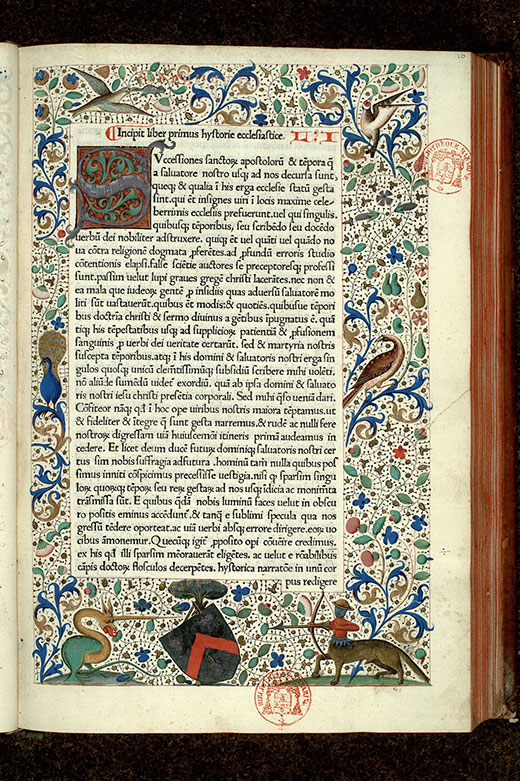 Incipit liber primus hystorie ecclesiastice. L.I
SVccessiones sanctoꝝ apostoloꝝ & tēpora q̄
a saluatore nostro usq; ad nos decursa sunt
quoq; & qualia ī his erga ecclesie statū gesta
sint. qui ēt insignes uiri ī locis maxime cele-
berrimis ecclesiis prefuerunt. uel qui singulis.
quibusq; tēporibus, seu scribēdo seu docēdo
uerbū dei nobiliter adstruxere. quiq; ēt uel quāti uel quādo no
ua cōtra religionē dogmata ꝓferētes. ad ꝓfundū erroris studio
cōtētionis elapsi. false sciētie auctores se preceptoresq; professi
sunt. passim uelut lupi graues gregē christi lacerātes. nec non &
ea mala que iudeoꝝ gentē ꝓ insidiis quas aduersū saluatorē mo
liti sūt uastauerūt. quibus ēt modis: & quotiēs. quibusue tēpori
bus doctrīa christi & sermo diuinus a gētibus īpugnatus ē. quā
tiq; his tēpestatibus usq; ad supplicioꝝ patientiā & ꝓfusionem
sanguinis ꝓ uerbi dei ueritate certarūt. sed & martyria nostris
suscepta tēporibus. atq; ī his domini & saluatoris nostri erga sin
gulos quosq; unicū clemētissimūq; subsidiū scribere mihi uolēti.
nō aliūde sumēdū uidetur exordiū. quā ab ipsa domini & saluato
ris nostri iesu christi presētia corporali. Sed mihi q̄so ueniā dari.
Cōfiteor nāq; qd̄ ī hoc ope uiribus nostris maiora tēptamus. ut
& fideliter & ītegre q̄ sunt gesta narremus. & rudē ac nulli fere
nostroꝝ digressam uiā huiuscemōi itineris primi audeamus in
cedere. Et licet deum ducē futuꝝ dominiq; saluatoris nostri cer
tus sim nobis suffragia adfutura. hominū tam̄ nulla quibus pos
simus inniti cōspicimus precessisse uestigia. nisi q̄ sparsim singu
loꝝ quoꝝq; tēpoꝝ seu reꝝ gestaꝝ ad nos usq; īdicia ac monimēta
trāsmissa sūt. E quibus q̄dā nobis luminū faces uelut in obscu
ro positis eminus accēdunt. & tanq̄ e sublimi specula qua nos
gressū tēdere oporteat. ac uiā uerbi absq; errore dirigere. eoꝝ uo
cibus āmonemur. Quecūq; igit̄ ꝓposito opi cōuēire credimus.
ex his qd̄ illi sparsim mēorauerāt eligētes. ac uelut e rōabilibus
cāpis doctoꝝ flosculos decerpētes. hystorica narratōe in unū cor
pus redigere